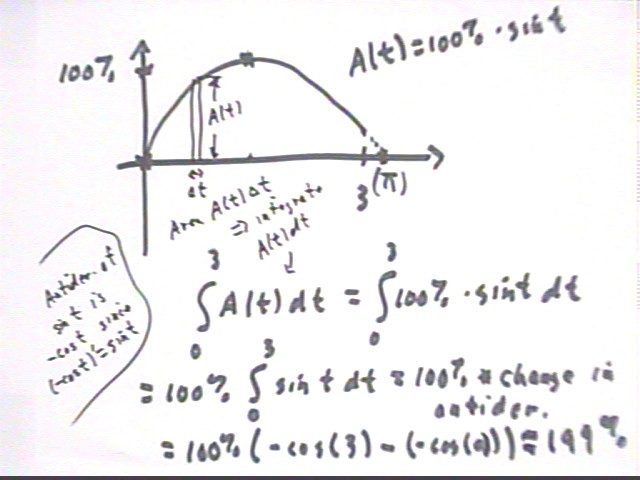 A(t) = 100% · sin t
100%
A(t)
Δt
3 (π)
Area A(t) Δt
⇒ integrate
A(t) dt
Antider. of
sin t is
-cos t since
(-cos t)' = sin t
∫₀³ A(t) dt = ∫₀³ 100% · sin t dt
= 100% ∫₀³ sin t dt = 100% * change in
antider.
= 100% (-cos(3) - (-cos(0))) ≈ 199%